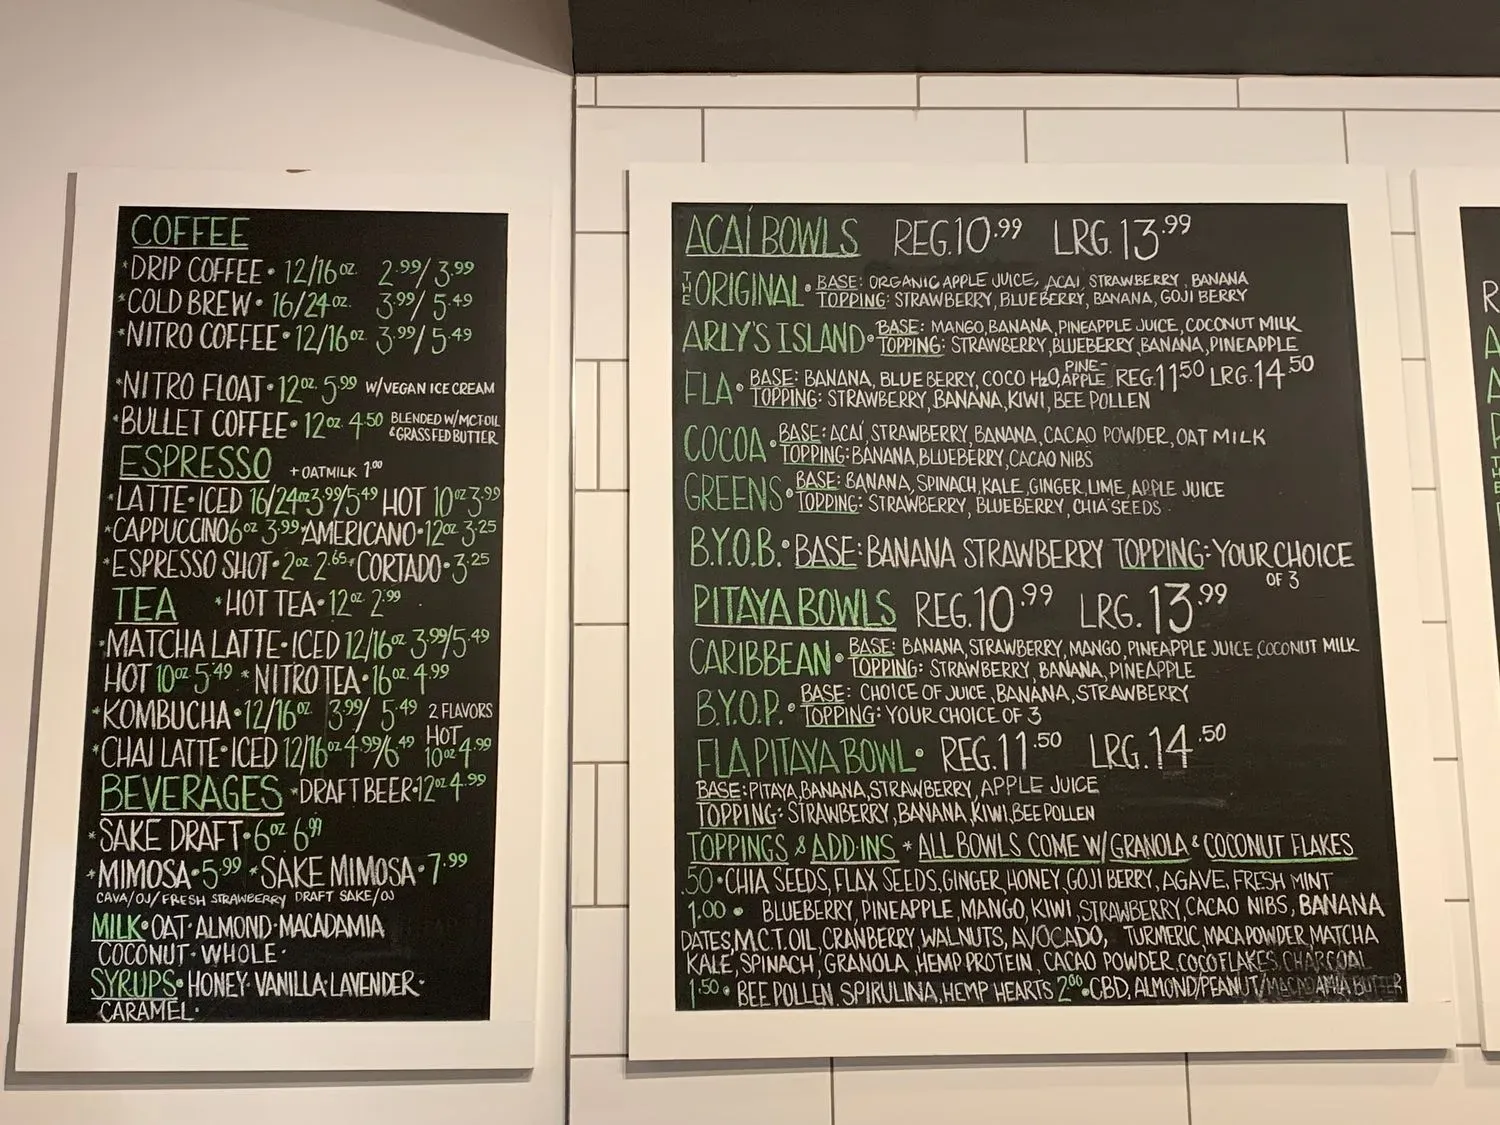 COFFEE
*DRIP COFFEE • 12/16oz. 2.99/3.99
*COLD BREW • 16/24oz. 3.99/5.49
*NITRO COFFEE • 12/16oz. 3.99/5.49
*NITRO FLOAT • 12oz. 5.99 W/VEGAN ICE CREAM
*BULLET COFFEE • 12oz. 4.50 BLENDED W/MCT OIL
& GRASSFED BUTTER
ESPRESSO + OATMILK 1.00
*LATTE • ICED 16/24oz 3.99/5.49 HOT 10oz 3.99
*CAPPUCCINO 6oz 3.99 *AMERICANO • 12oz 3.25
*ESPRESSO SHOT • 2oz. 2.65 * CORTADO • 3.25
TEA *HOT TEA • 12oz 2.99
*MATCHA LATTE • ICED 12/16oz 3.99/5.49
HOT 10oz 5.49 * NITRO TEA • 16oz 4.99
*KOMBUCHA • 12/16oz 3.99/5.49 2 FLAVORS
*CHAI LATTE • ICED 12/16oz 4.99/6.49 HOT 10oz 4.99
BEVERAGES *DRAFT BEER • 12oz 4.99
*SAKE DRAFT • 6oz 6.99
*MIMOSA • 5.99 *SAKE MIMOSA • 7.99
CAVA/OJ/FRESH STRAWBERRY DRAFT SAKE/OJ
MILK • OAT • ALMOND • MACADAMIA
COCONUT • WHOLE •
SYRUPS • HONEY • VANILLA • LAVENDER •
CARAMEL •
ACAÍ BOWLS REG. 10.99 LRG. 13.99
THE ORIGINAL • BASE: ORGANIC APPLE JUICE, ACAI, STRAWBERRY, BANANA
TOPPING: STRAWBERRY, BLUEBERRY, BANANA, GOJI BERRY
ARLY'S ISLAND • BASE: MANGO, BANANA, PINEAPPLE JUICE, COCONUT MILK
TOPPING: STRAWBERRY, BLUEBERRY, BANANA, PINEAPPLE
FLA • BASE: BANANA, BLUEBERRY, COCO H2O, PINE-APPLE REG. 11.50 LRG. 14.50
TOPPING: STRAWBERRY, BANANA, KIWI, BEE POLLEN
COCOA • BASE: ACAÍ, STRAWBERRY, BANANA, CACAO POWDER, OAT MILK
TOPPING: BANANA, BLUEBERRY, CACAO NIBS
GREENS • BASE: BANANA, SPINACH, KALE, GINGER, LIME, APPLE JUICE
TOPPING: STRAWBERRY, BLUEBERRY, CHIA SEEDS
B.Y.O.B. • BASE: BANANA STRAWBERRY TOPPING: YOUR CHOICE
OF 3
PITAYA BOWLS REG. 10.99 LRG. 13.99
CARIBBEAN • BASE: BANANA, STRAWBERRY, MANGO, PINEAPPLE JUICE, COCONUT MILK
TOPPING: STRAWBERRY, BANANA, PINEAPPLE
B.Y.O.P. • BASE: CHOICE OF JUICE, BANANA, STRAWBERRY
TOPPING: YOUR CHOICE OF 3
FLA PITAYA BOWL • REG. 11.50 LRG. 14.50
BASE: PITAYA, BANANA, STRAWBERRY, APPLE JUICE
TOPPING: STRAWBERRY, BANANA, KIWI, BEE POLLEN
TOPPINGS & ADD-INS * ALL BOWLS COME W/ GRANOLA & COCONUT FLAKES
.50 • CHIA SEEDS, FLAX SEEDS, GINGER, HONEY, GOJI BERRY, AGAVE, FRESH MINT
1.00 • BLUEBERRY, PINEAPPLE, MANGO, KIWI, STRAWBERRY, CACAO NIBS, BANANA
DATES, M.C.T. OIL, CRANBERRY, WALNUTS, AVOCADO, TURMERIC, MACA POWDER, MATCHA
KALE, SPINACH, GRANOLA, HEMP PROTEIN, CACAO POWDER, COCO FLAKES, CHARCOAL
1.50 • BEE POLLEN, SPIRULINA, HEMP HEARTS 2.00 • CBD, ALMOND/PEANUT/MACADAMIA BUTTER